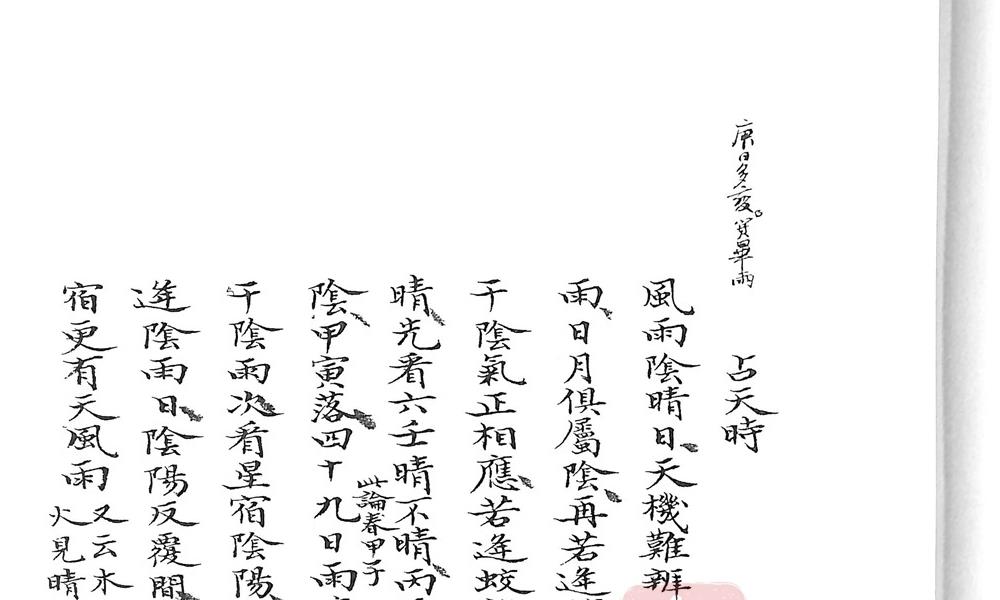 庚日多變。實畢雨
占天時
風雨陰晴日天機難辨
雨日月俱屬陰再若逢
干陰氣正相應若逢蛟
晴先看六壬晴不晴丙
此論春甲子
陰甲寅落四十九日雨
干陰雨次看星宿陰陽
逢陰雨日陰陽反覆間
宿更有天風雨
又云水
火見晴